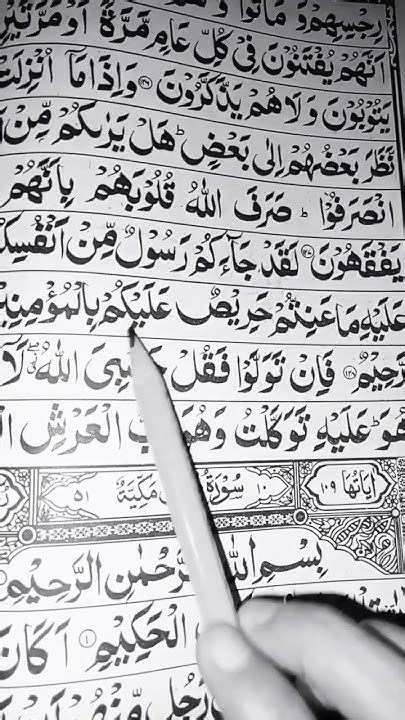 رِجْسِهِمْ وَ مَاتُوْا وَ
اَنَّهُمْ يُفْتَنُوْنَ فِيْ كُلِّ عَامٍ مَّرَّةً اَوْ مَرَّتَيْنِ
يَتُوْبُوْنَ وَلَا هُمْ يَذَّكَّرُوْنَ ۝۱۲۶ وَاِذَا مَاۤ اُنْزِلَتْ
نَّظَرَ بَعْضُهُمْ اِلٰى بَعْضٍ ؕ هَلْ يَرٰىكُمْ مِّنْ
انْصَرَفُوْا ؕ صَرَفَ اللّٰهُ قُلُوْبَهُمْ بِاَنَّهُمْ
يَفْقَهُوْنَ ۝۱۲۷ لَقَدْ جَآءَكُمْ رَسُوْلٌ مِّنْ
عَلَيْهِ مَا عَنِتُّمْ حَرِيْصٌ عَلَيْكُمْ بِالْمُؤْمِنِيْنَ
رَّحِيْمٌ ۝۱۲۸ فَاِنْ تَوَلَّوْا فَقُلْ اللّٰهُ لَاۤ
هُوَ ؕ عَلَيْهِ تَوَكَّلْتُ وَهُوَ الْعَرْشِ
اٰيَاتُهَا ۱۰۹ ۱۰ سُوْرَةُ مَكِّيَّةٌ ۵۱
بِسْمِ اللّٰهِ الرَّحْمٰنِ الرَّحِيْمِ
الْحَكِيْمِ ۝۱ اَكَانَ
رَجُلٍ مِّنْهُمْ